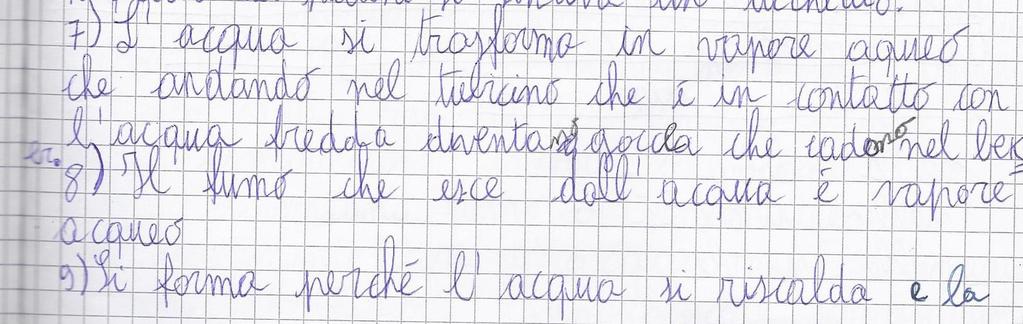 7) L'acqua si trasforma in vapore aqueo
che andando nel tubicino che è in contatto con
l'acqua fredda diventano goccia che cadono nel bek
er.
8) Il fumo che esce dall'acqua è vapore
acqueo
9) Si forma perché l'acqua si riscalda e la